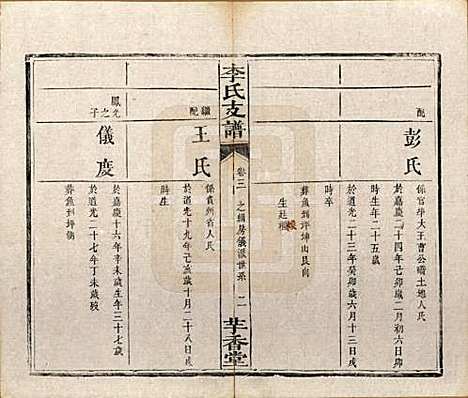 配
彭氏
係官华大王曹公磺土地人民
於嘉慶二十四年己卯歲二月初六日
時生年二十五歲
於道光二十三年癸卯歲六月十三日戌
時卒
葬魚州坪坤山艮向
生起
李氏支譜
卷三
之綱房儀派世系
二
芋香堂
繼配
王氏
係貴州省人氏
於道光十九年己亥歲十月二十八日戌
時生
鳳光之子
儀度
於嘉慶十六年辛未歲生年三十七歲
於道光二十七年丁未歲歿
葬魚州坪街